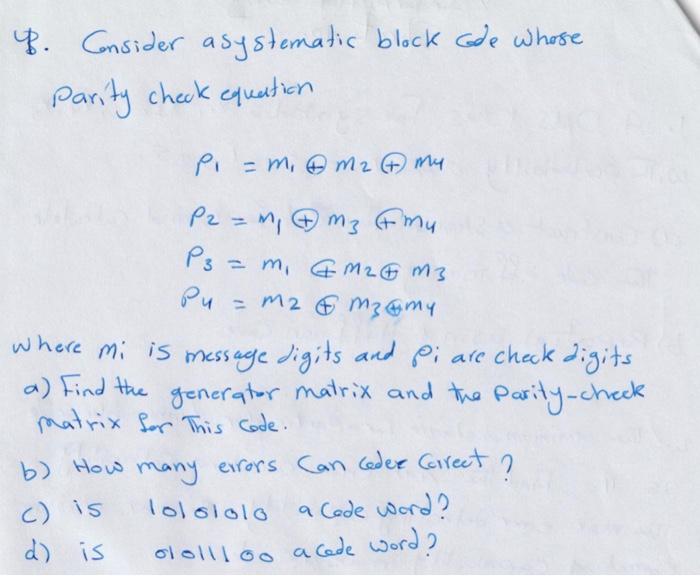 8. Consider a systematic block code whose
Parity check equation
P1 = m1 ⊕ m2 ⊕ m4
P2 = m1 ⊕ m3 ⊕ m4
P3 = m1 ⊕ m2 ⊕ m3
P4 = m2 ⊕ m3 ⊕ m4
where mi is message digits and Pi are check digits
a) Find the generator matrix and the parity-check
matrix for This Code.
b) How many errors Can Correct ?
c) is 10101010 a Code word?
d) is 01011100 a code word?